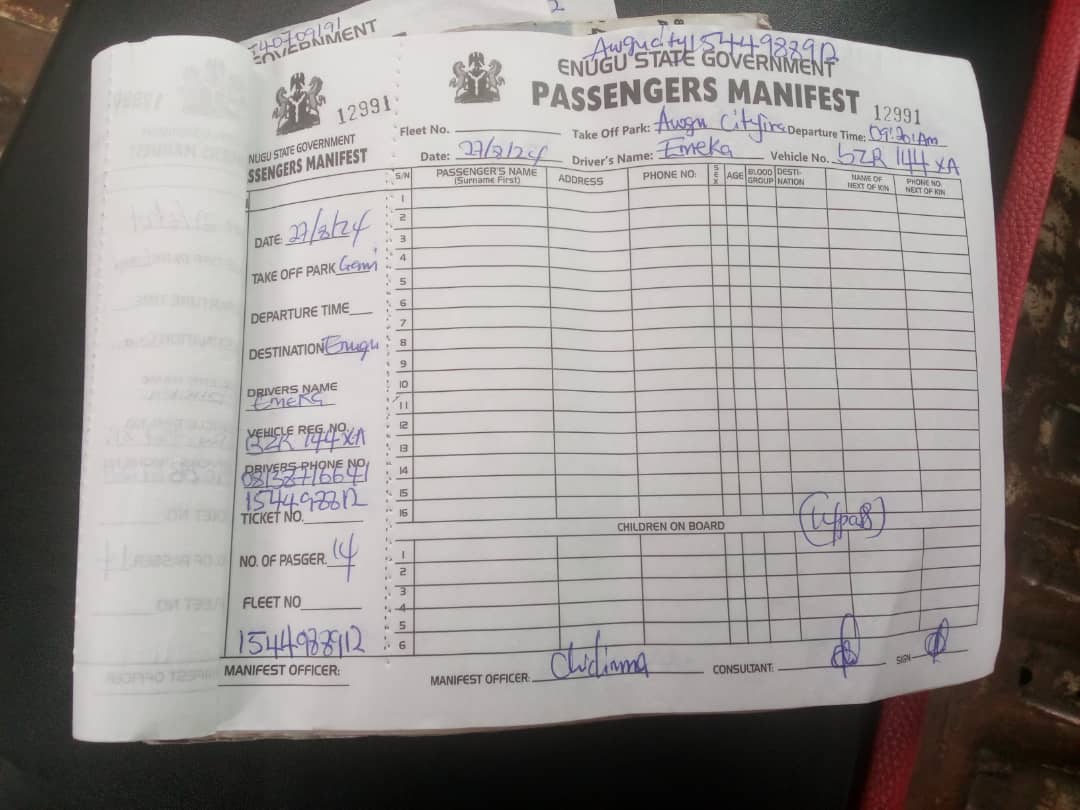 40709191
GOVERNMENT
12991
NUGU STATE GOVERNMENT
SSENGERS MANIFEST
DATE: 27/8/24
TAKE OFF PARK
DEPARTURE TIME
DESTINATION Enugu
DRIVERS NAME
Emeka
VEHICLE REG. NO.
BZR 144 XA
DRIVERS PHONE NO.
08138716641
1544988912
TICKET NO.
NO. OF PASGER. 14
FLEET NO
1544988912
MANIFEST OFFICER:
Awgu city 1544988912
ENUGU STATE GOVERNMENT
PASSENGERS MANIFEST
12991
Fleet No. Take Off Park: Awgu Departure Time: 09:20:Am
Date: 27/8/24 Driver's Name: Emeka Vehicle No. bZR 144 XA
S/N PASSENGER'S NAME (Surname First) ADDRESS PHONE NO: SEX AGE BLOOD GROUP DESTI-NATION NAME OF NEXT OF KIN PHONE NO. NEXT OF KIN
1
2
3
4
5
6
7
8
9
10
11
12
13
14
15
16
CHILDREN ON BOARD
1
2
3
4
5
6
MANIFEST OFFICER: Chidinma CONSULTANT: SIGN